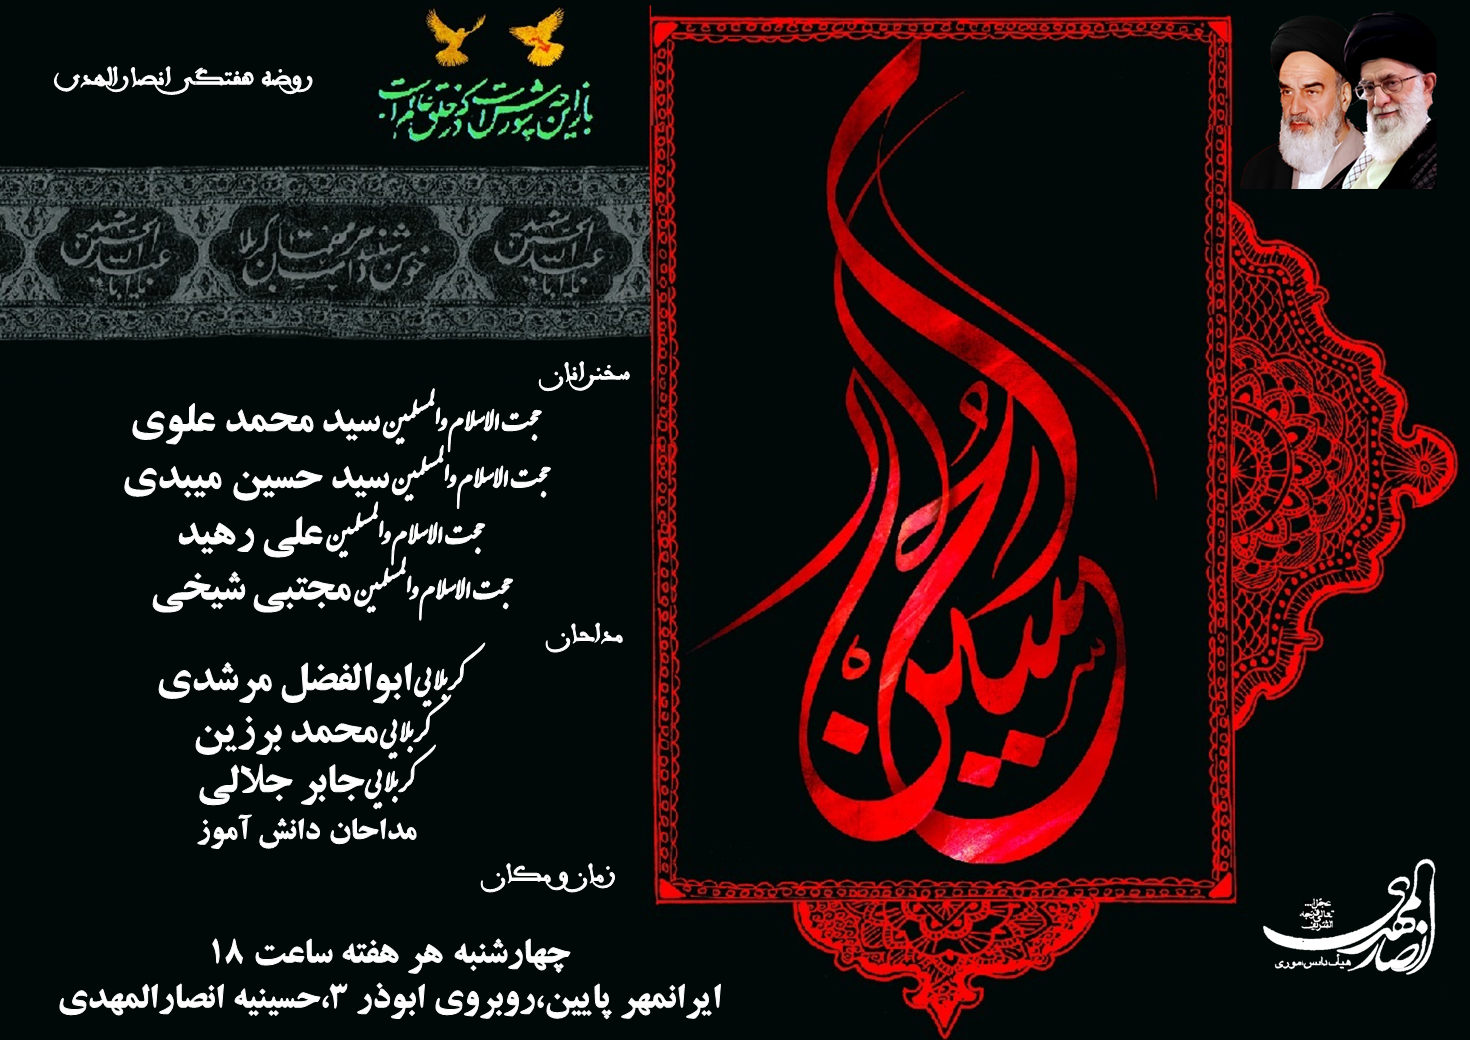 روضه هفتگی انصارالمهدی
باز این چه شورش است که در خلق عالم است
یا اباعبدالله الحسین
یا اباعبدالله الحسین
سخنرانان
حجت الاسلام والمسلمین سید محمد علوی
حجت الاسلام والمسلمین سید حسین میبدی
حجت الاسلام والمسلمین علی رهید
حجت الاسلام والمسلمین مجتبی شیخی
مداحان
کربلایی ابوالفضل مرشدی
کربلایی محمد برزین
کربلایی جابر جلالی
مداحان دانش آموز
زمان و مکان
چهارشنبه هر هفته ساعت ۱۸
ایرانمهر پایین،روبروی ابوذر ۳،حسینیه انصارالمهدی
الحسین
انصارالمهدی
عجل الله تعالی فرجه الشریف
هیأت دانش آموزی